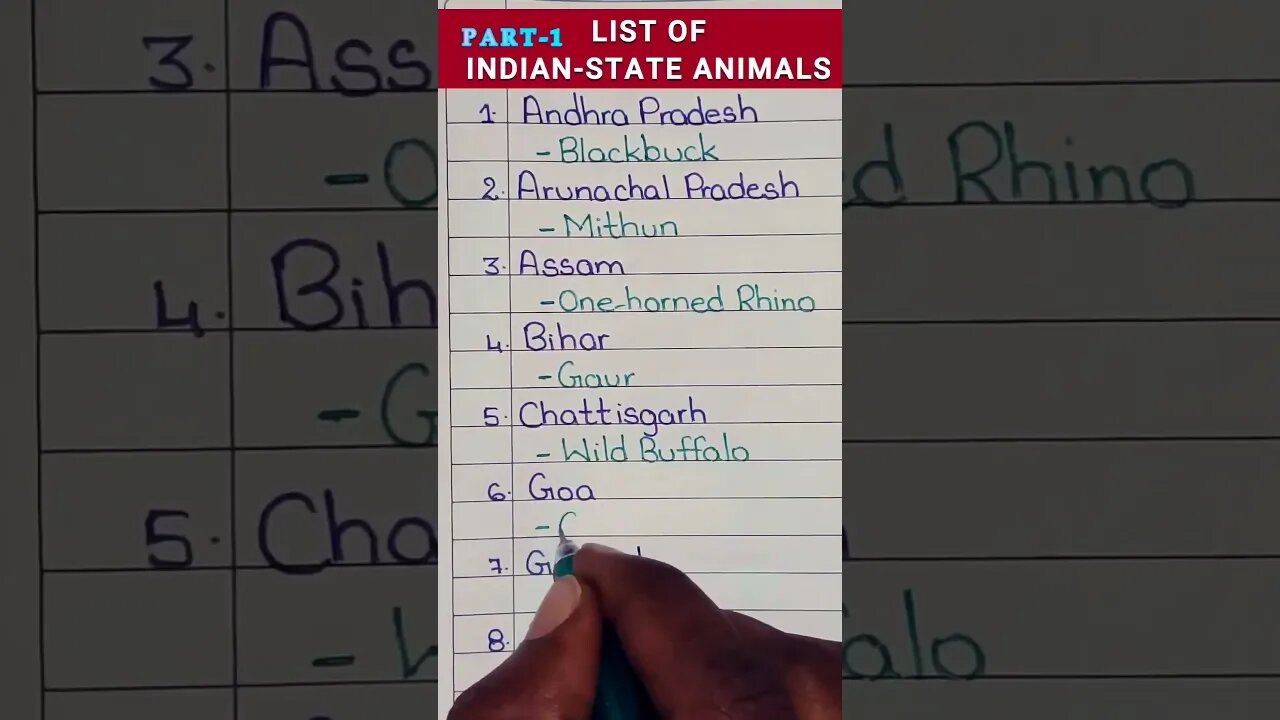 PART-1 LIST OF
INDIAN-STATE ANIMALS
1. Andhra Pradesh
- Blackbuck
2. Arunachal Pradesh
- Mithun
3. Assam
- One-horned Rhino
4. Bihar
- Gaur
5. Chattisgarh
- Wild Buffalo
6. Goa
- G
7. G
8.